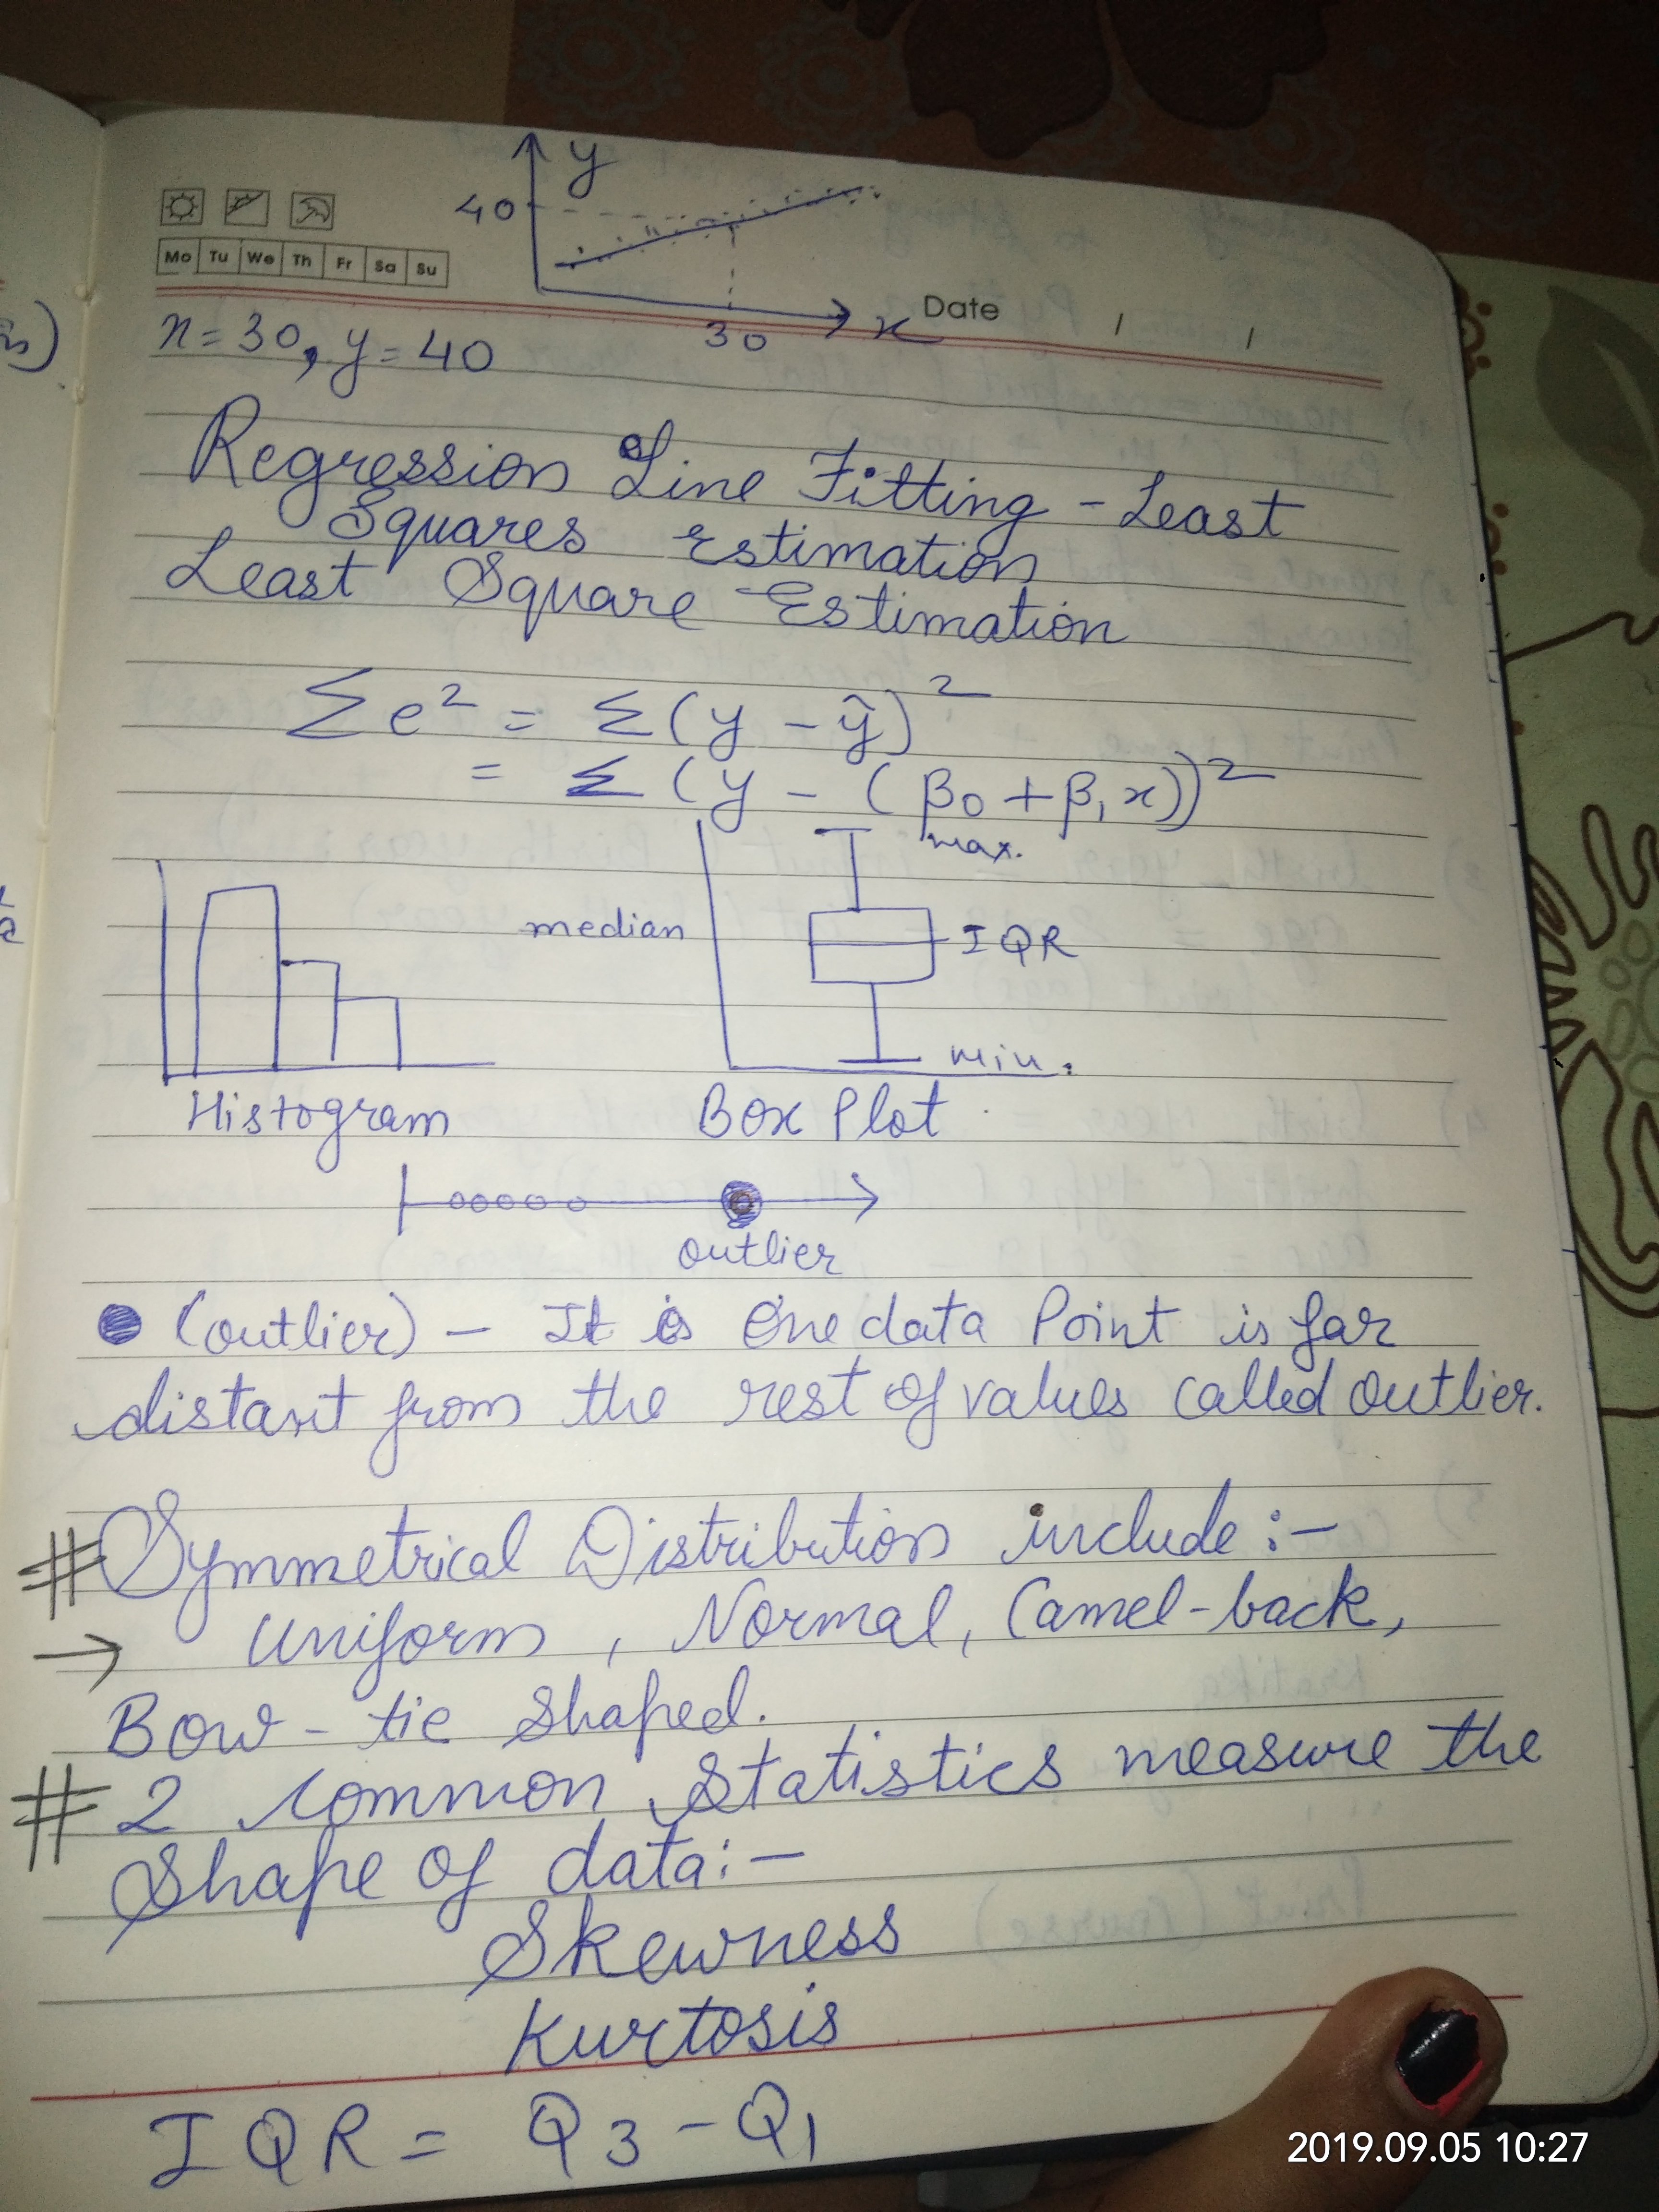 y
40
Mo Tu We Th Fr Sa Su
30
x
Date / /
x=30, y=40
Regression Line Fitting - Least
Squares Estimation
Least Square Estimation
Σe² = Σ(y - ŷ)²
= Σ(y - (β0 + β1x))²
max.
median
IQR
min.
Histogram
Box Plot
outlier
(outlier) - It is One data Point is far
distant from the rest of values called outlier.
# Symmetrical Distribution include :-
→ Uniform, Normal, Camel-back,
Bow - tie Shaped.
# 2 common Statistics measure the
Shape of data :-
Skewness
Kurtosis
IQR = Q3 - Q1
2019.09.05 10:27